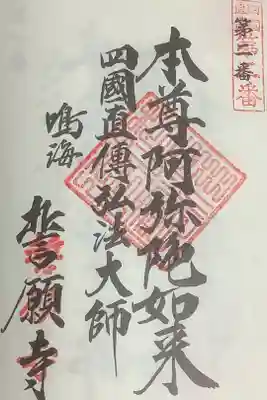 第二番
本尊阿弥陀如来
四國直傳弘法大師
鳴海
誓願寺